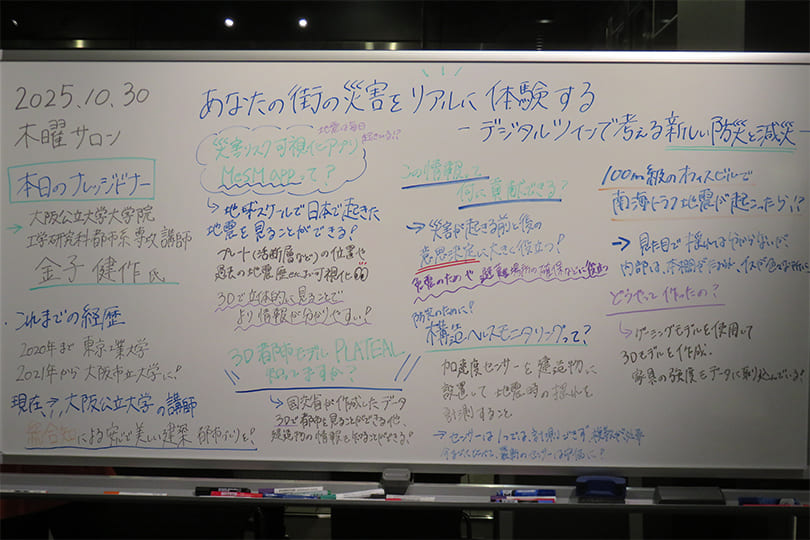 2025.10.30
木曜サロン
あなたの街の災害をリアルに体験する
－デジタルツインで考える新しい防災と減災－
本日のナレッジドナー
→ 大阪公立大学大学院
工学研究科都市系専攻講師
金子 健作 氏
・これまでの経歴
2020年まで 東京工業大学
2021年から 大阪市立大学に!
現在→大阪公立大学の講師
総合知による安心で美しい建築 都市づくりを!
地震は毎日
起きている!?
災害リスク可視化アプリ
MeSM appって?
↳ 地球スケールで日本で起きた
地震を見ることができる!
プレート(活断層など)の位置や
過去の地震 可視化
3Dで立体的に見ることで
より情報が分かりやすい!
3D都市モデル PLATEAU
知ってますか?
↳ 国交省が作成したデータ
3Dで都市を見ることができる他、
建造物の情報も知ることができる!
この情報って
何に貢献できる?
→ 災害が起きる前と後の
意思決定に大きく役立つ!
避難場所の確保などに役立つ
防災のために!
構造ヘルスモニタリングって?
加速度センサーを建造物に
設置して 地震時の揺れを
計測すること
→ センサーは1つでは計測できず 複数必要
最新のセンサーは安価に!
100m級のオフィスビルで
南海トラフ地震が起こったら!?
→ 見た目で揺れは分からないが
内部は、本棚がたおれ、イスが
どうやって作ったの?
↳ ゲーミングモデルを使用して
3Dモデルを作成。
家具の強度もデータに取り込んでいる!